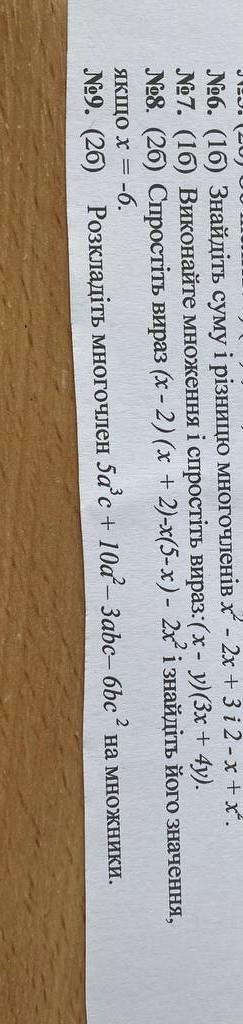 №6. (1б) Знайдіть суму і різницю многочленів x² - 2x + 3 і 2 - x + x².
№7. (1б) Виконайте множення і спростіть вираз: (x - y)(3x + 4y).
№8. (2б) Спростіть вираз (x - 2)(x + 2)-x(5-x) - 2x² і знайдіть його значення,
якщо x = -6.
№9. (2б) Розкладіть многочлен 5a³c + 10a² – 3abc– 6bc ² на множники.